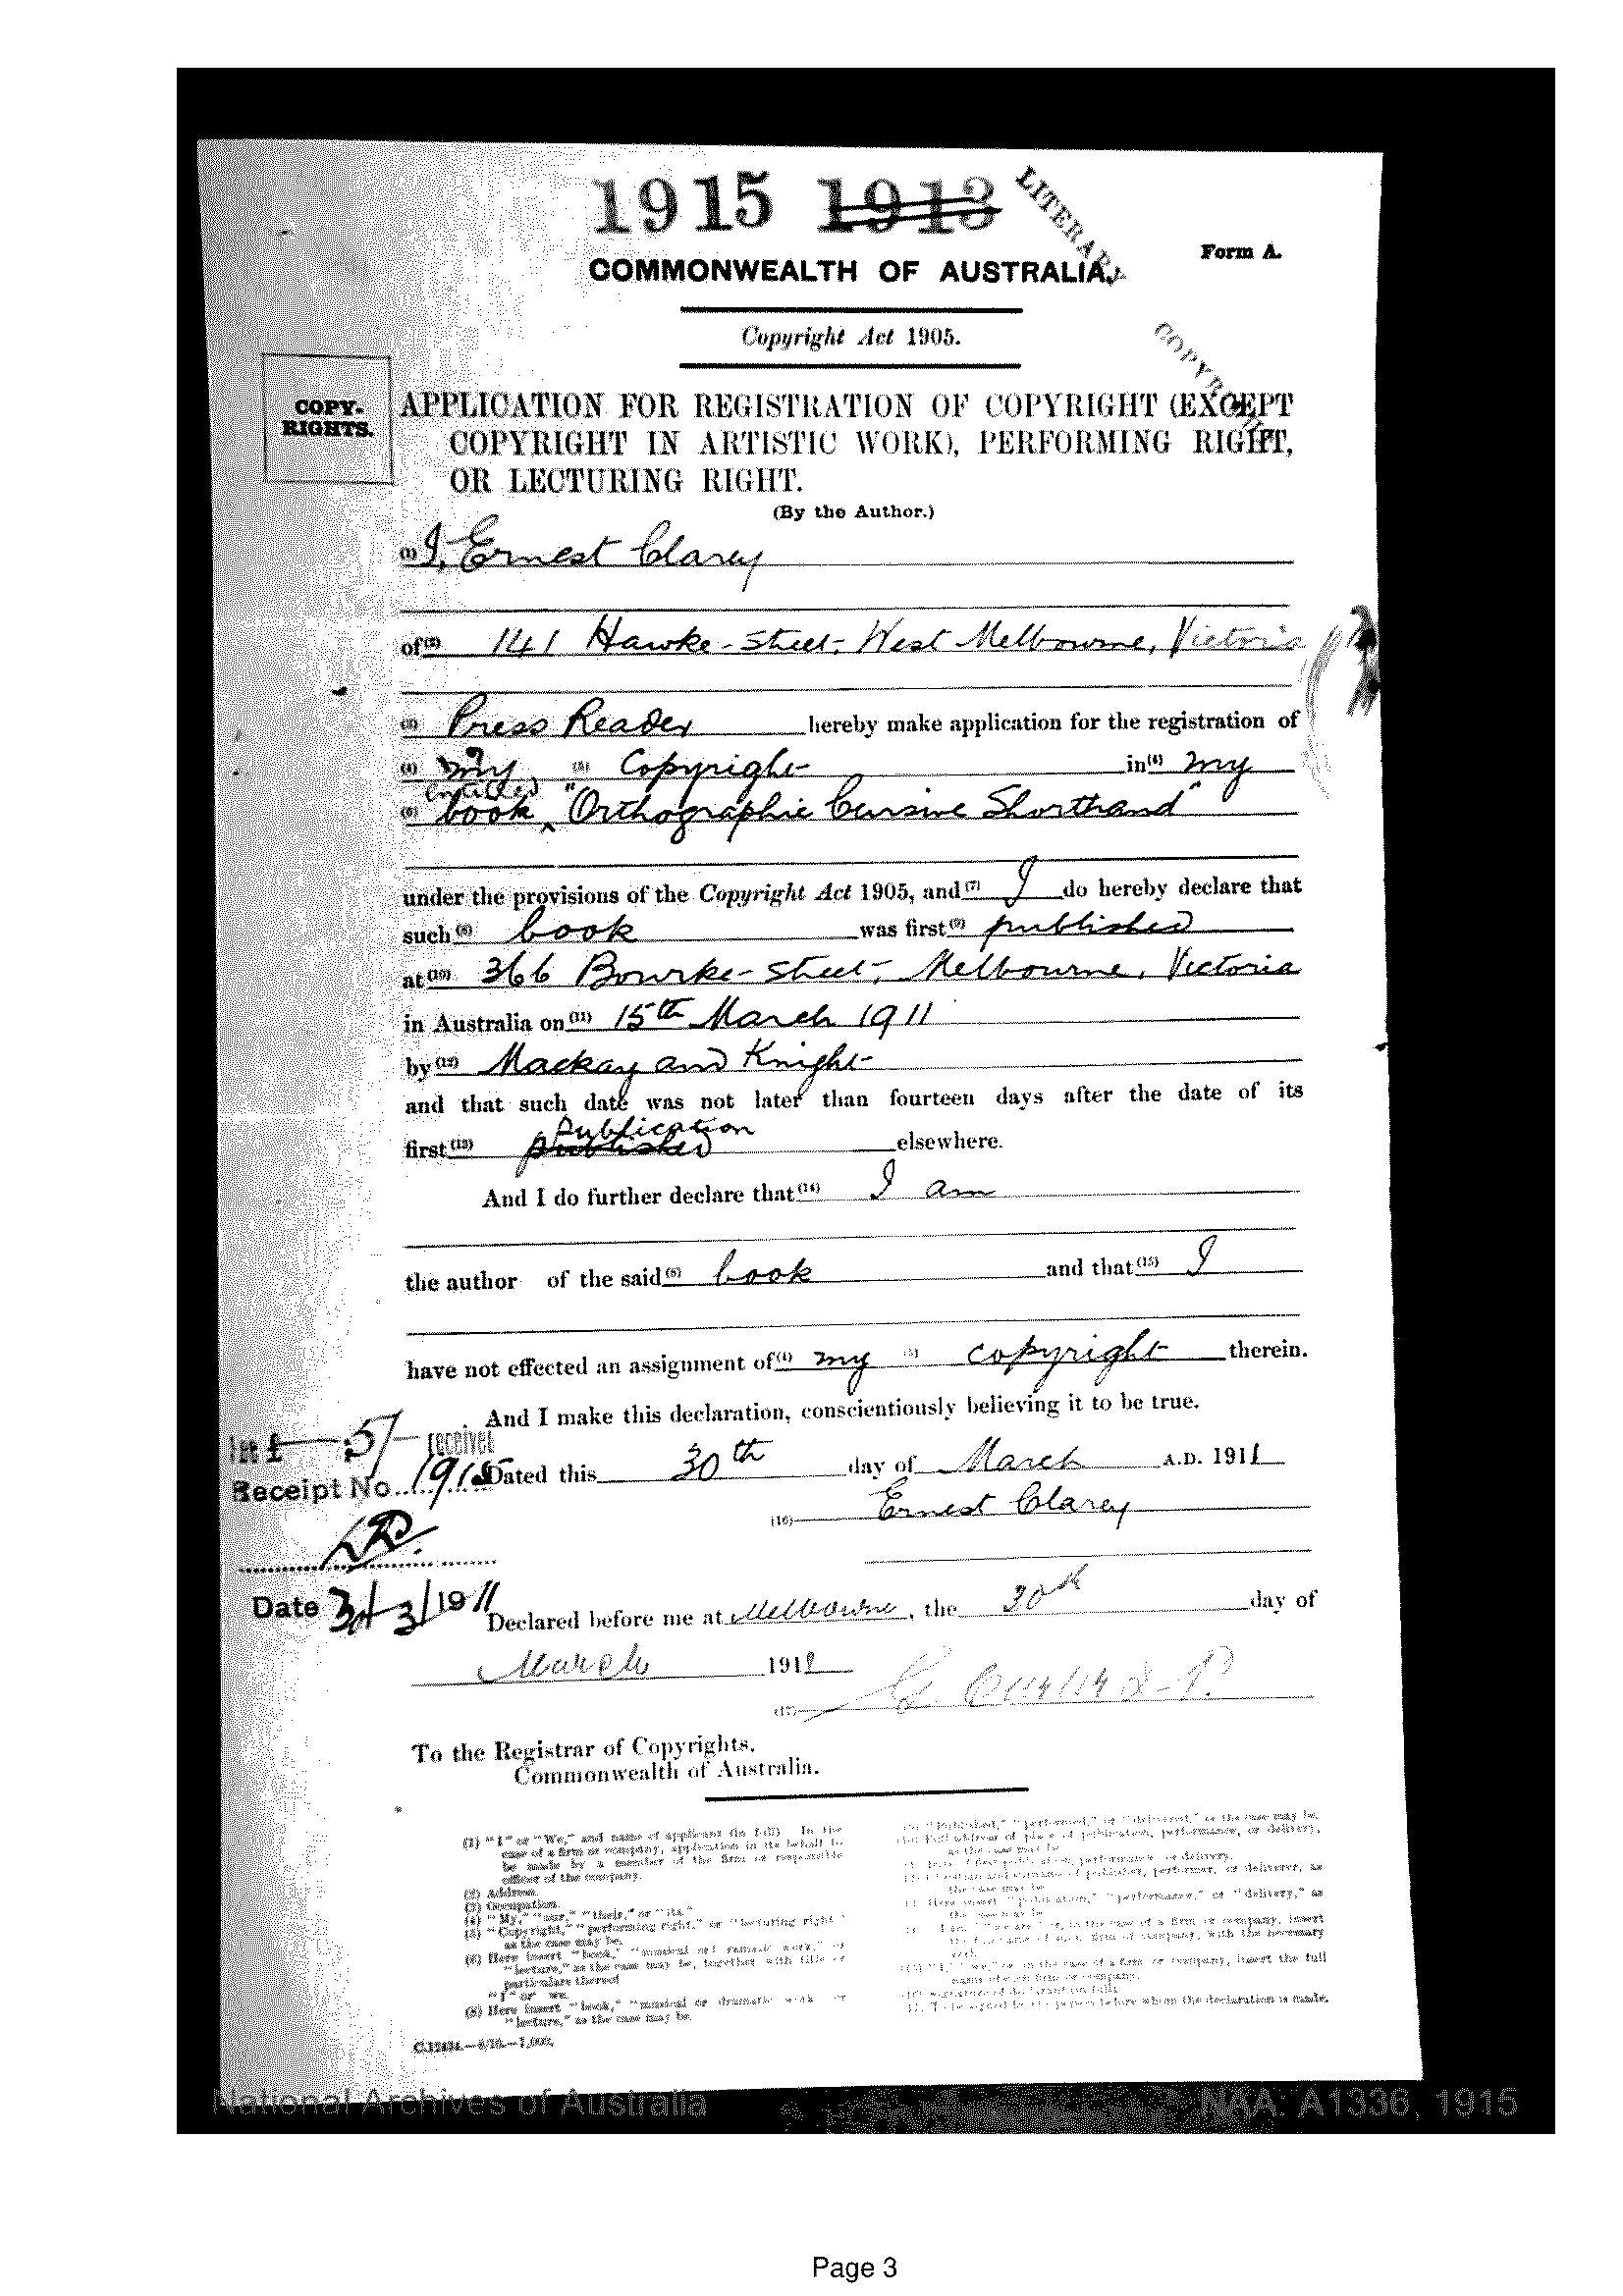 1915 1913
LITERARY
COMMONWEALTH OF AUSTRALIA.
Form A.
Copyright Act 1905.
COPYRIGHT
COPY-
RIGHTS.
APPLICATION FOR REGISTRATION OF COPYRIGHT (EXCEPT
COPYRIGHT IN ARTISTIC WORK), PERFORMING RIGHT,
OR LECTURING RIGHT.
(By the Author.)
(1) I, Ernest Clarey
of (2) 141 Hawke-Street, West Melbourne, Victoria
(3) Press Reader hereby make application for the registration of
(4) my (5) Copyright in (4) my
entitled
(6) book "Orthographic Cursive Shorthand"
under the provisions of the Copyright Act 1905, and (7) I do hereby declare that
such (8) book was first (9) published
at (10) 366 Bourke-Street, Melbourne, Victoria
in Australia on (11) 15th March 1911
by (12) Mackay and Knight
and that such date was not later than fourteen days after the date of its
Publication
first (13) published elsewhere.
And I do further declare that (14) I am
the author of the said (8) book and that (15) I
have not effected an assignment of (4) my (5) copyright therein.
And I make this declaration, conscientiously believing it to be true.
£ 5/- received
Receipt No. 1915
Dated this 30th day of March A.D. 1911
(16) Ernest Clarey
Date 30/3/1911
Declared before me at Melbourne, the 30th day of
March 1911
(17)
To the Registrar of Copyrights,
Commonwealth of Australia.
(1) "I" or "We," and name of applicant (in full). In the
case of a firm or company, application in its behalf to
be made by a member of the firm or responsible
officer of the company.
(2) Address.
(3) Occupation.
(4) "My," "our," "their," or "its."
(5) "Copyright," "performing right," or "lecturing right"
as the case may be.
(6) Here insert "book," "musical or dramatic work," or
"lecture," as the case may be, together with title or
particulars thereof
"I" or "we."
(8) Here insert "book," "musical or dramatic work" or
"lecture," as the case may be.
"Published," "performed," or "delivered," as the case may be.
Full address of place of publication, performance, or delivery,
as the case may be.
Date of first publication, performance or delivery.
Christian and surname of publisher, performer, or deliverer, as
the case may be.
Here insert "publication," "performance," or "delivery," as
the case may be.
"I am," "we are," or, in the case of a firm or company, insert
the full name of such firm or company, with the necessary
verb.
"I," "we," or in the case of a firm or company, insert the full
name of such firm or company.
Signature of declarant (in full).
To be signed by the person before whom the declaration is made.
National Archives of Australia
NAA: A1336, 1915
Page 3